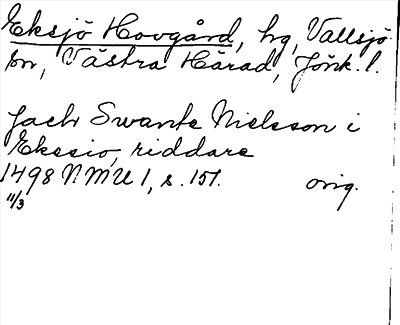 Eksjö Hovgård, hg, Vallsjö
sn, Västra Härad, Jönk. l.
Jach Swante Nielsson i
Ekssio, riddare
1498 NMU 1, s. 151. orig.
11/3